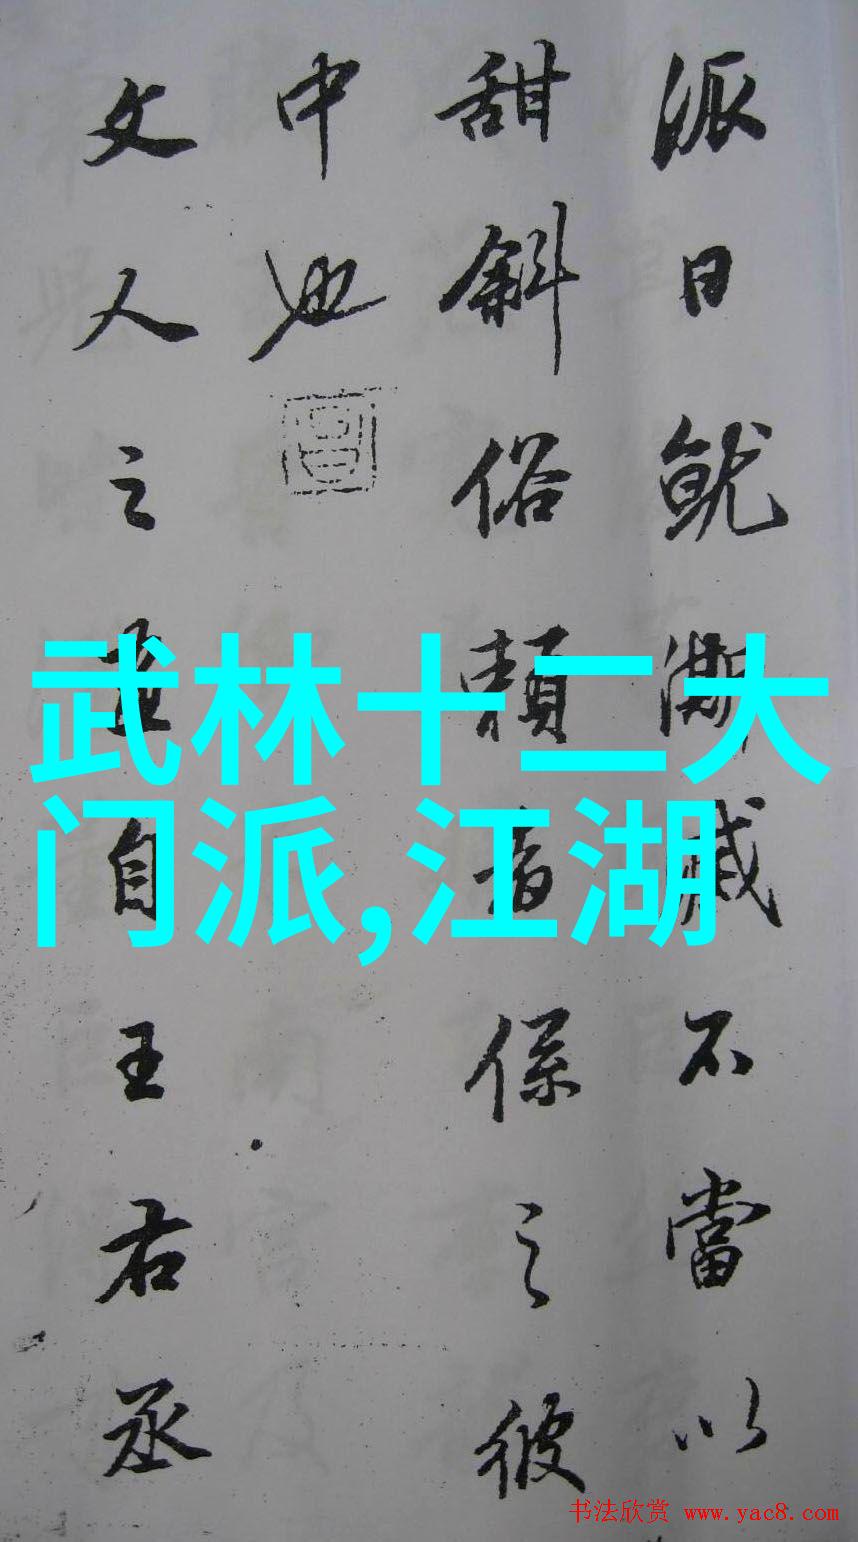 派日就澌滅不當以
甜斜俗賴者係之彼
中也
文人之畫自王右丞
武林十二大
门派,江湖
书法欣赏 www.yac8.com